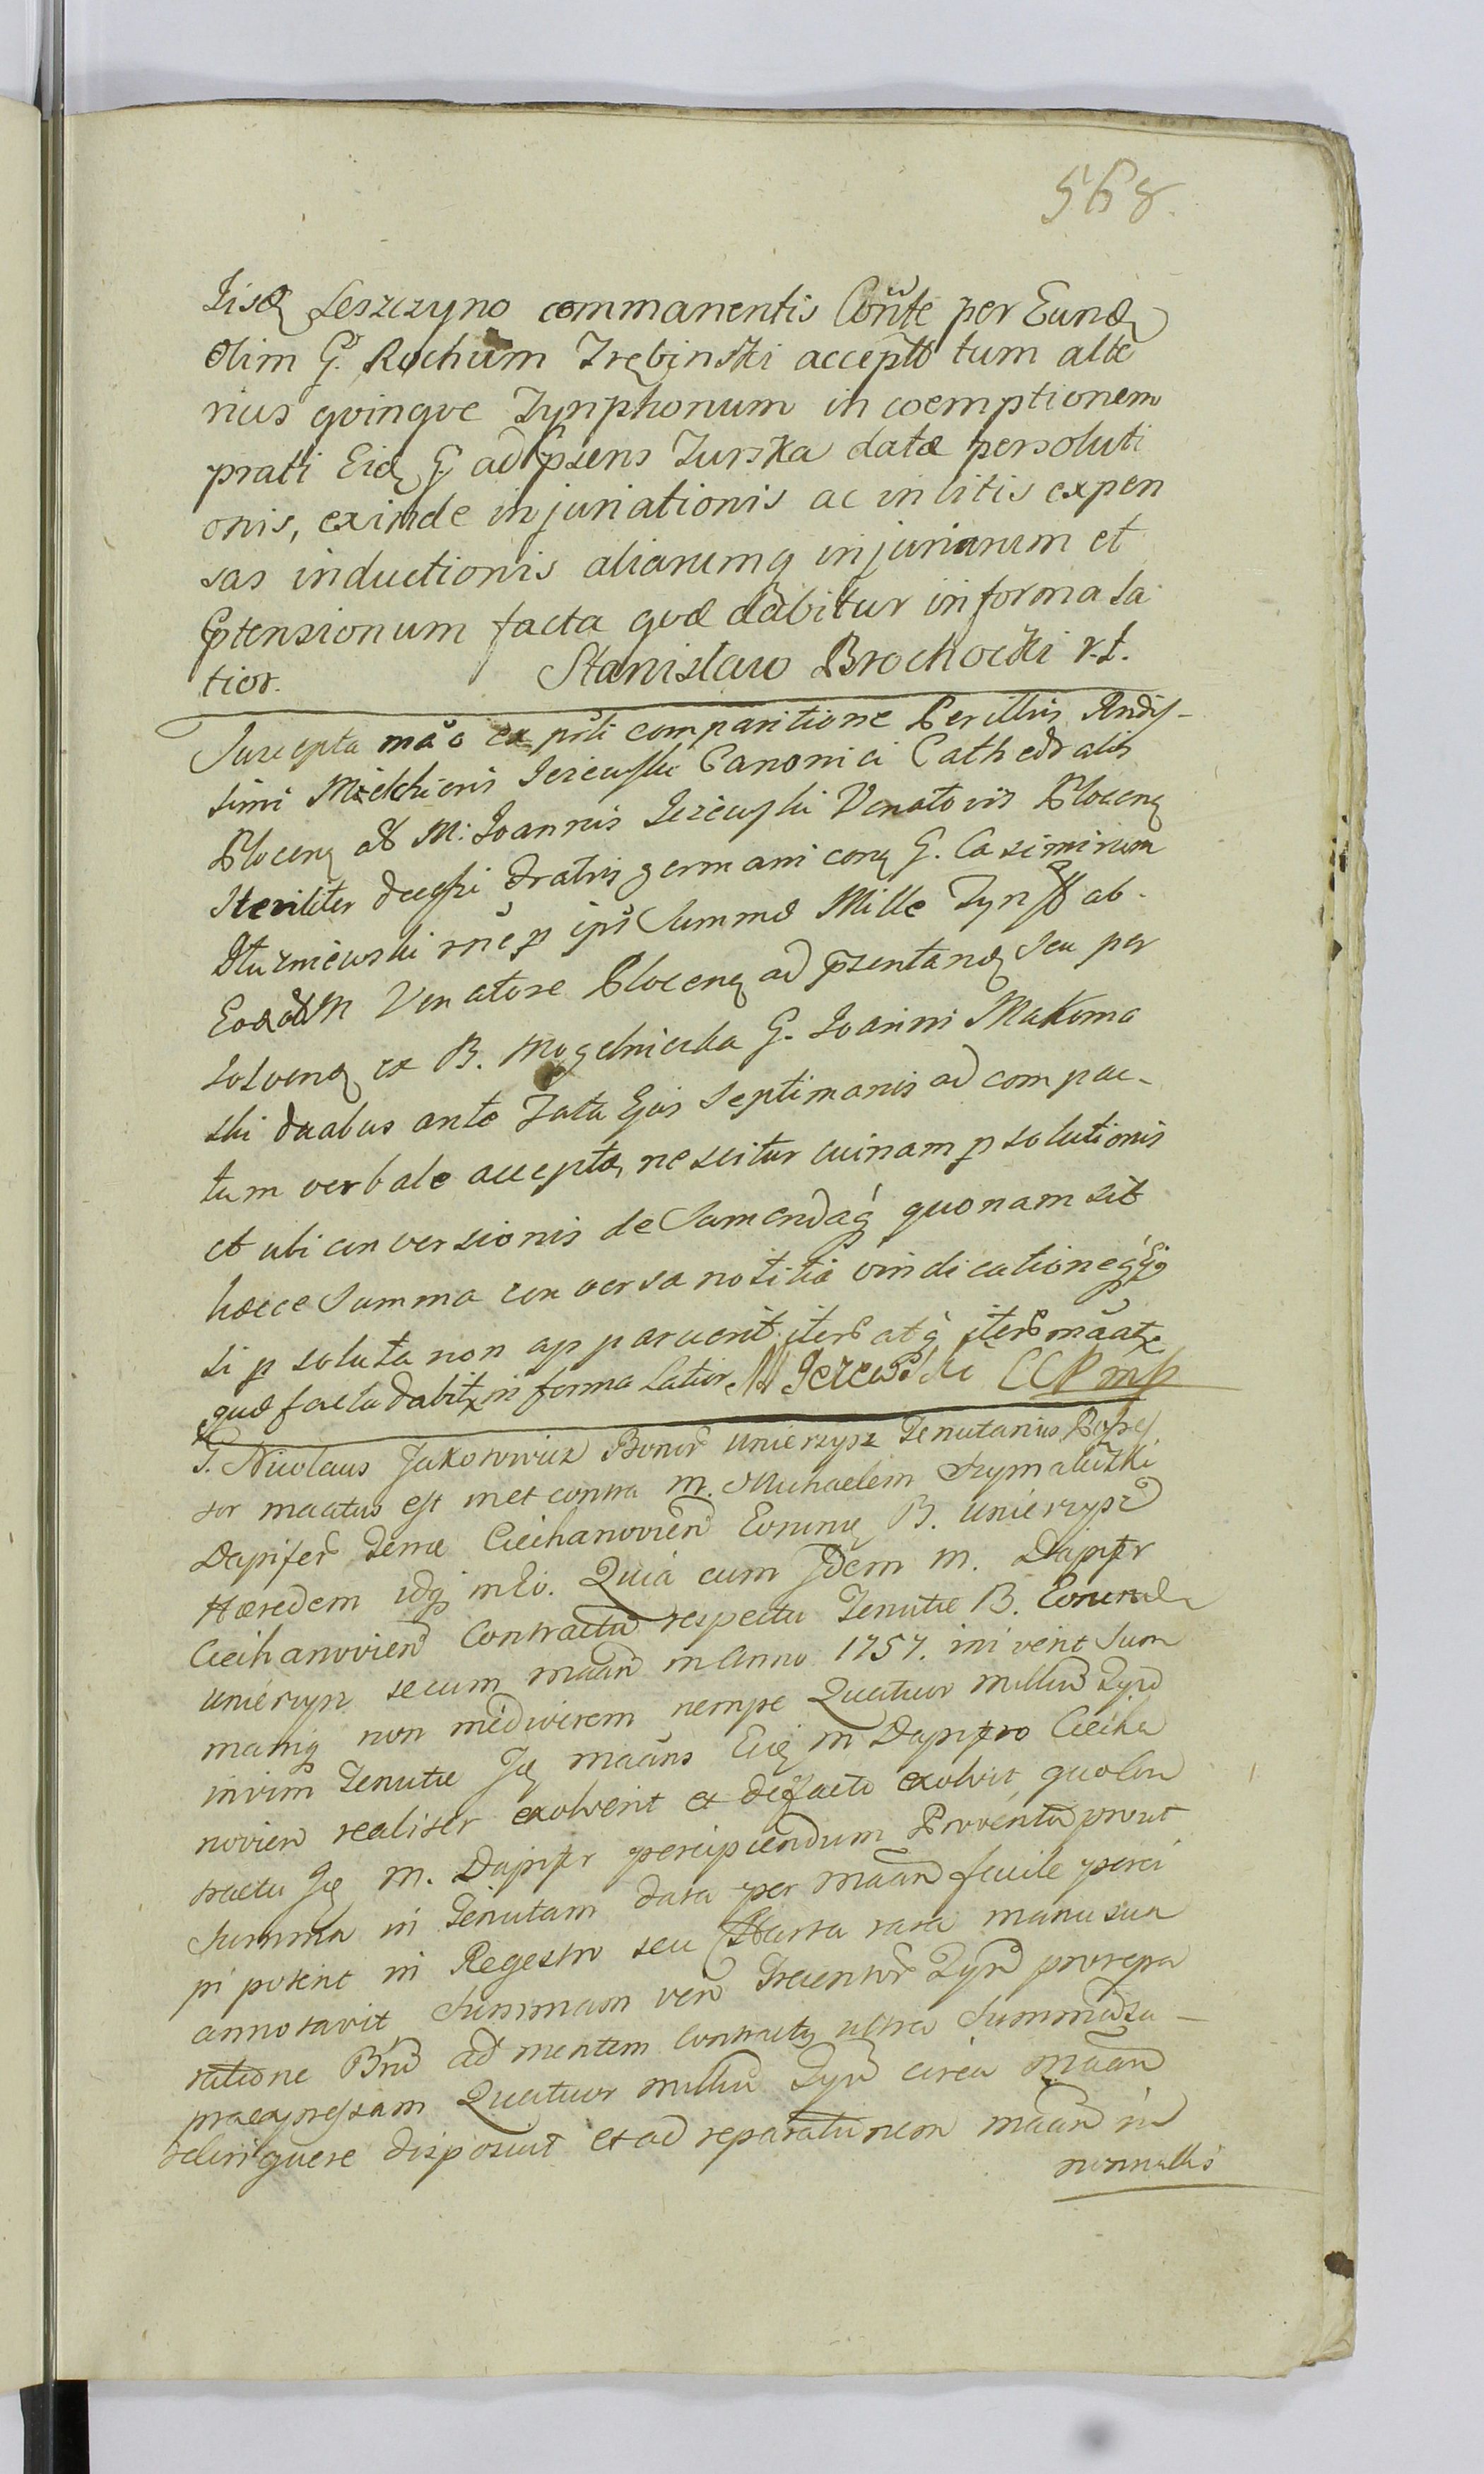 568.
Iisdq Leszczyno commanentis Coñte per Eundq
Olim G. Rochum Trębinski accepto tum alte
rius qvinqve Tynphonum in coemptionem
prati Eidq G. ad psens Turska datæ persoluti
onis, exinde injuriationis ac in litis expen
sas inductionis aliarumq injuriarum et
Ptensionum facta qvæ dabitur in forma la
tior. Stanisław Brochocki r.t.
Suscepta mão ex pñti comparitione Perillris Rndis-
simi Melchioris Jezewski Canonici Cathedralis
Plocenq ab M: Joannis Jezewski Venatoris Plocenq
Steriliter decessi Fratris germani conq G. Casimirum
Dłuzniewski rñe p ips Summæ Mille Tynff ab
Eodem M Venatore Plocenq ad psentandq seu per
solvenq ex B. Mogelnicka G. Joanni Makoma
ski duabus ante Fata Ejus septimanis ad compac-
tum verbale accepta, nescitur cuinam p solutionis
et ubi conversionis de Sumendaq quonam sit
hæcce Summa conversa notitia vindicationeqz Ejq
si p soluta non apparuerit iterõ atq iterõ mãat
quæ facta dabitr in forma latior M Jezewski CCP mp
G. Nicolaus Jakotowicz Bonor Unierzysz Tenutarius Posses
sor maatus est met contra M. Michaelem Szymakuzki
Dapifer Terræ Ciechanovien Eorumq B. Unierzysz
Hæredem idqz in Eo. Quia cum Idem M. Dapifr
Ciechanovien Contractu respectu Tenutæ B. Eorund
Unierzysz secum maan in Anno 1757. inivent Sum
mamqz non mediocrem nempe Quatuor milliu Tynf
in vim Tenutæ Iq maans Eiq M Dapifro Ciecha
novien realiter exolverit et de facto exolvit quo Con
tractu Iq M. Dapifr percipiendum Proventu prout
Summa in Tenutam data per maan facile perci
pi potent in Regestro seu Charta rasa manu sua
annotavit Summam vero Trecentor Tynf pro repa
ratione Bno ad mentem Contractq ultra Summa su-
praexpressam Quatuor milliu Tynf circa Maan
relinquere disposuit et ad reparationem maan in
nonnullis